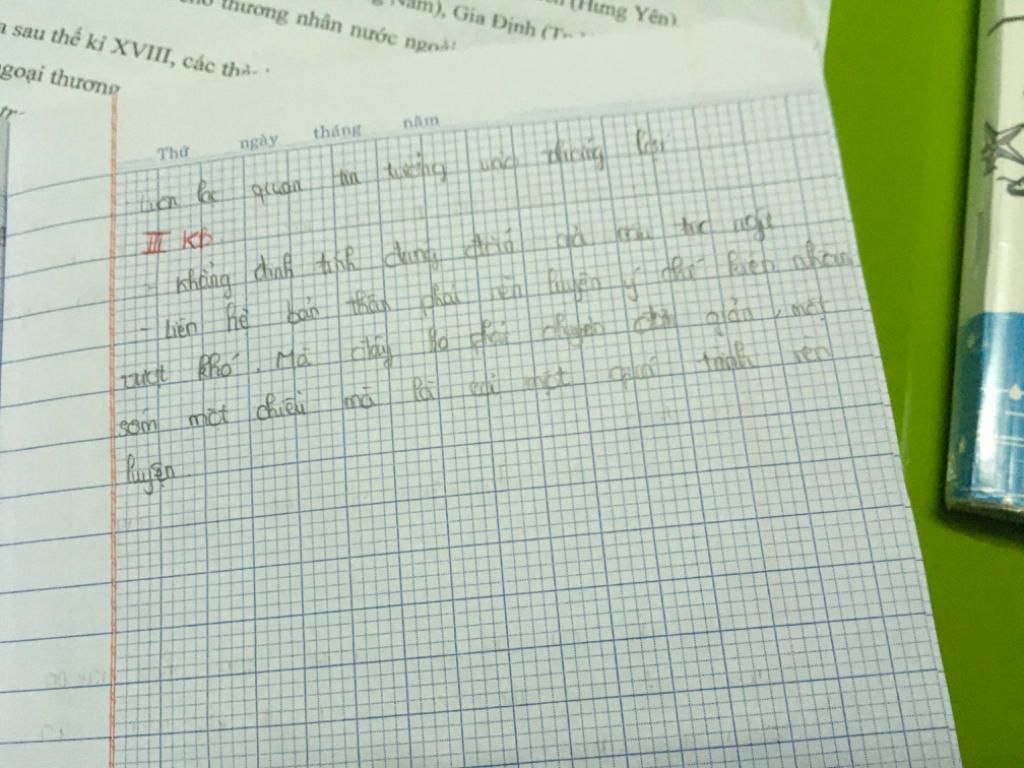 (Hưng Yên)
Nam), Gia Định
thương nhân nước ngoài
sau thế kỉ XVIII, các
ngoại thương
Thứ ngày tháng năm
lạc quan tin tưởng vào thắng lợi
III KB
- Khẳng định tính đúng đắn
- Liên hệ bản thân phải rèn luyện ý chí kiên nhẫn
vượt khó. Mà đây ko phải chuyện đơn giản, một
sớm một chiều mà là cả một quá trình rèn
luyện